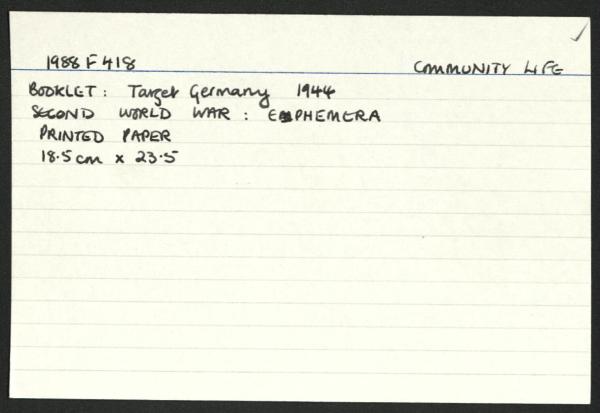 1988 F 418 COMMUNITY LIFE
BOOKLET: Target Germany 1944
SECOND WORLD WAR: EPHEMERA
PRINTED PAPER
18.5cm x 23.5